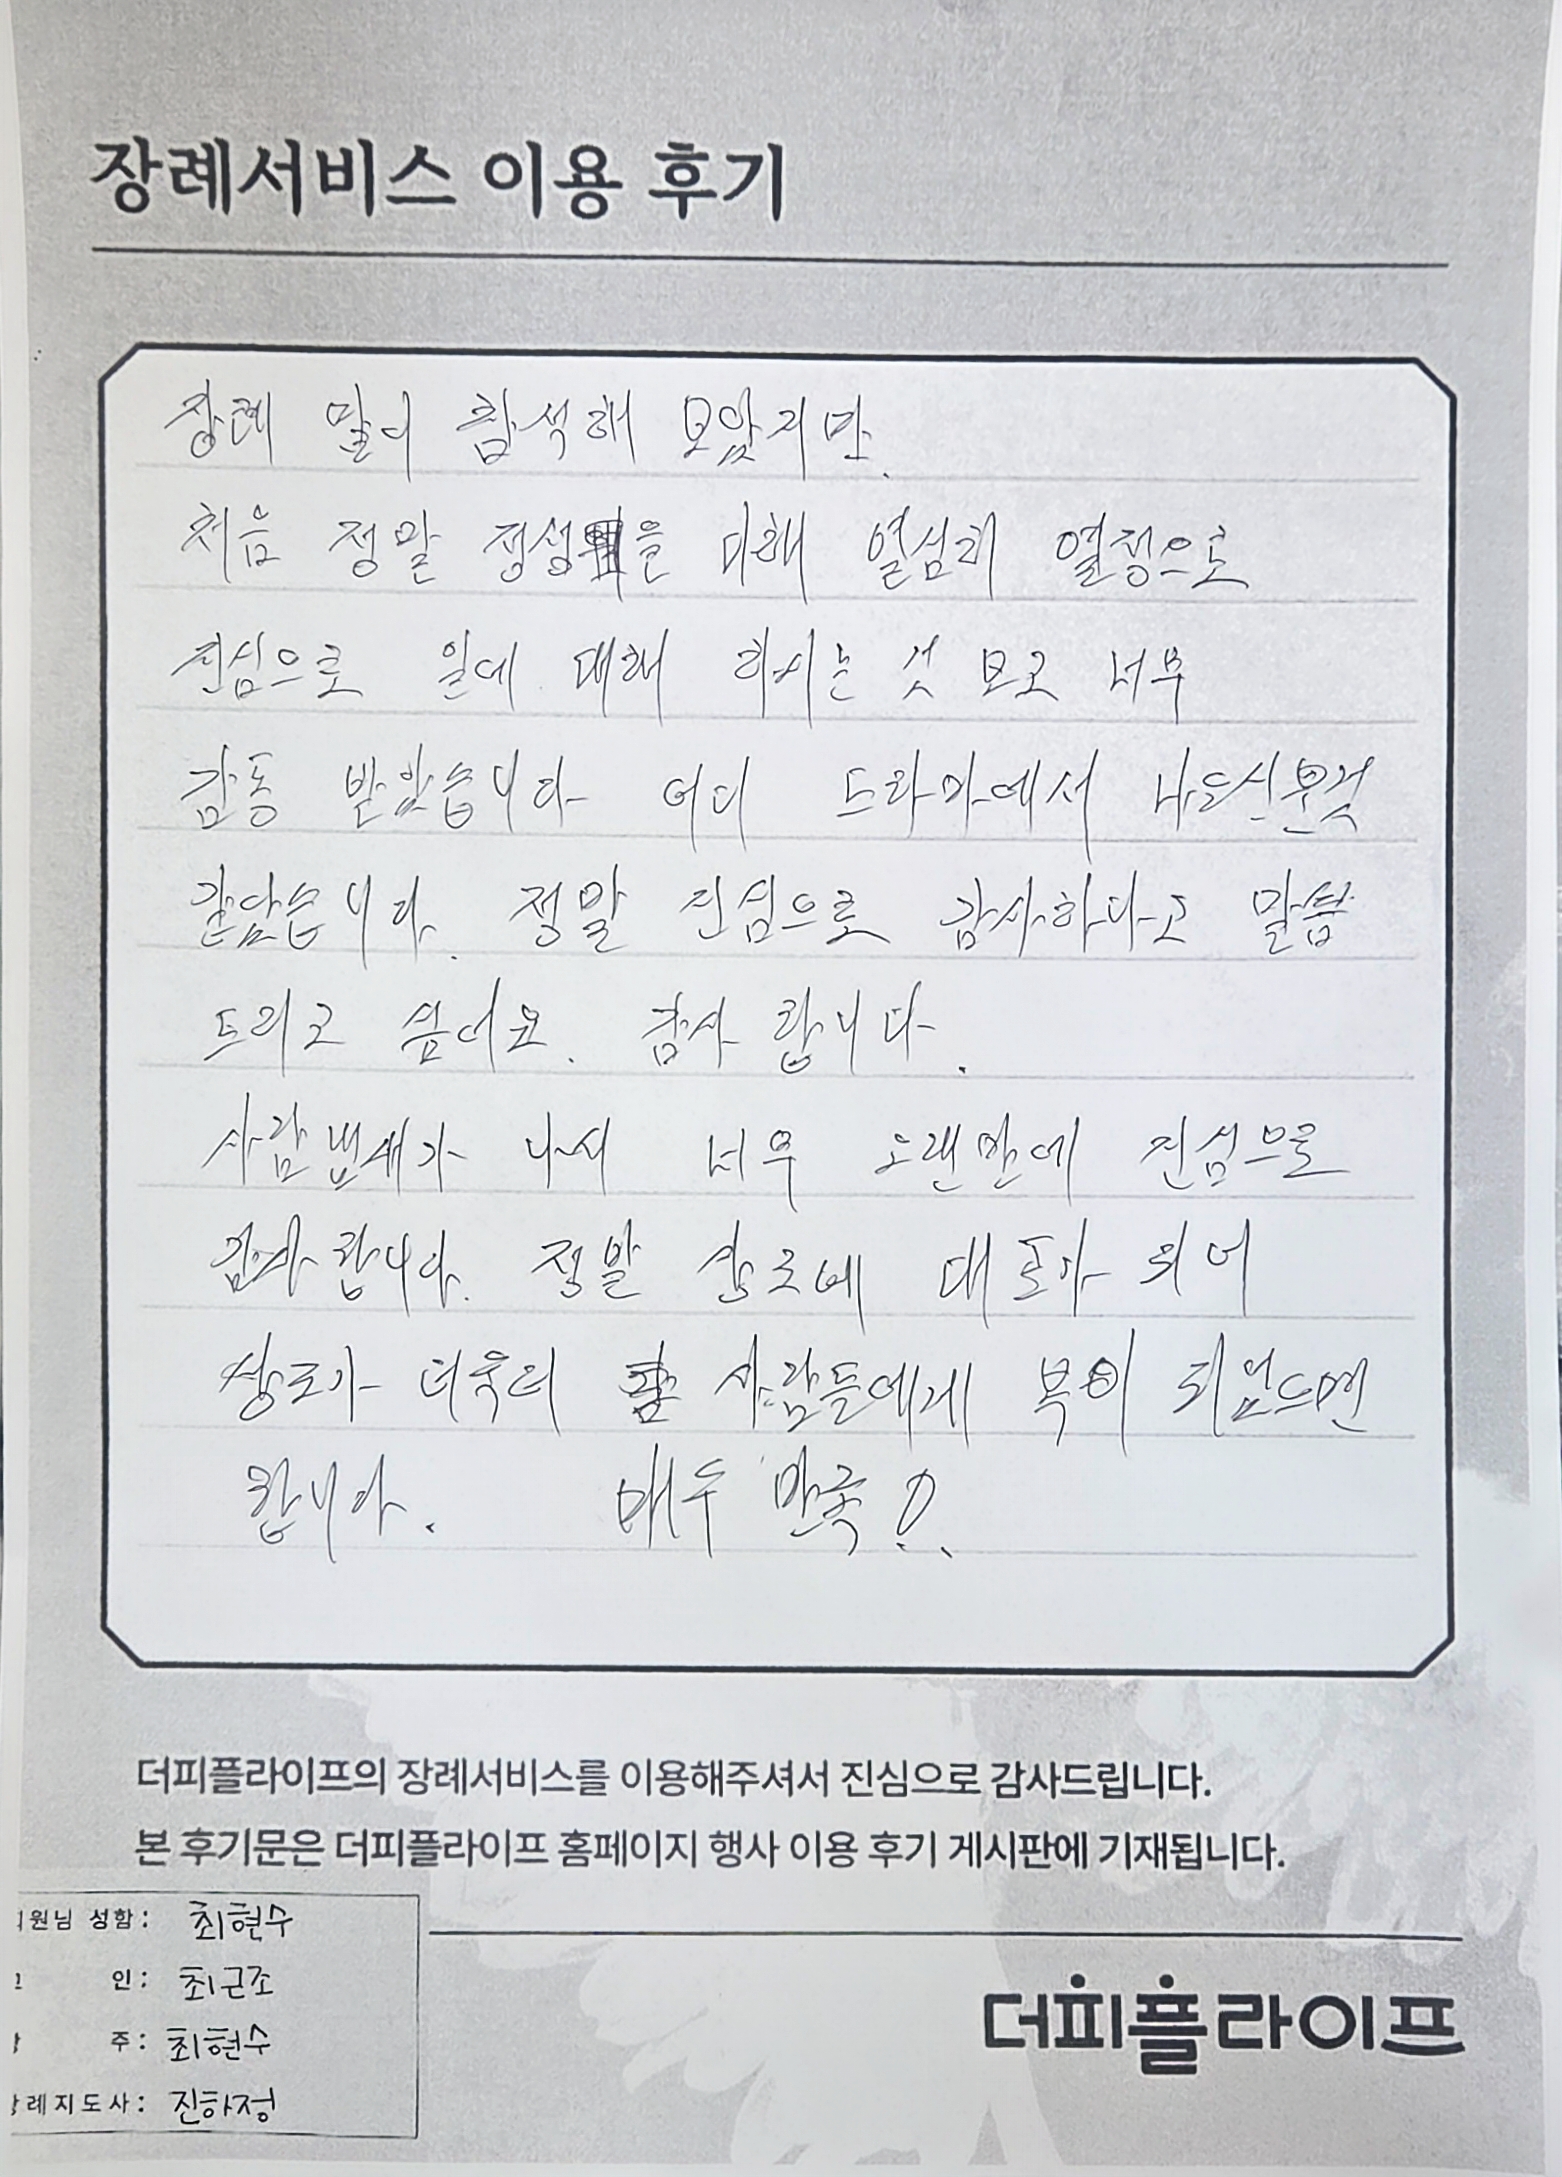 장례서비스 이용 후기
장례 많이 참석해 보았지만.
처음 정말 정성을 다해 열심히 열정으로
진심으로 일에 대해 하시는 것 보고 너무
감동 받았습니다 어디 드라마에서 나오신분것
같았습니다. 정말 진심으로 감사하다고 말씀
드리고 싶어요. 감사 합니다.
사람냄새가 나서 너무 오랜만에 진심으로
감사 합니다. 정말 상조에 대표가 되어
상조가 더욱더 사람들에게 복이 되었으면
합니다. 만국!
더피플라이프의 장례서비스를 이용해주셔서 진심으로 감사드립니다.
본 후기문은 더피플라이프 홈페이지 행사 이용 후기 게시판에 기재됩니다.
원님 성함: 최현수
인: 최근조
주: 최현수
례지도사: 진하정
더피플라이프